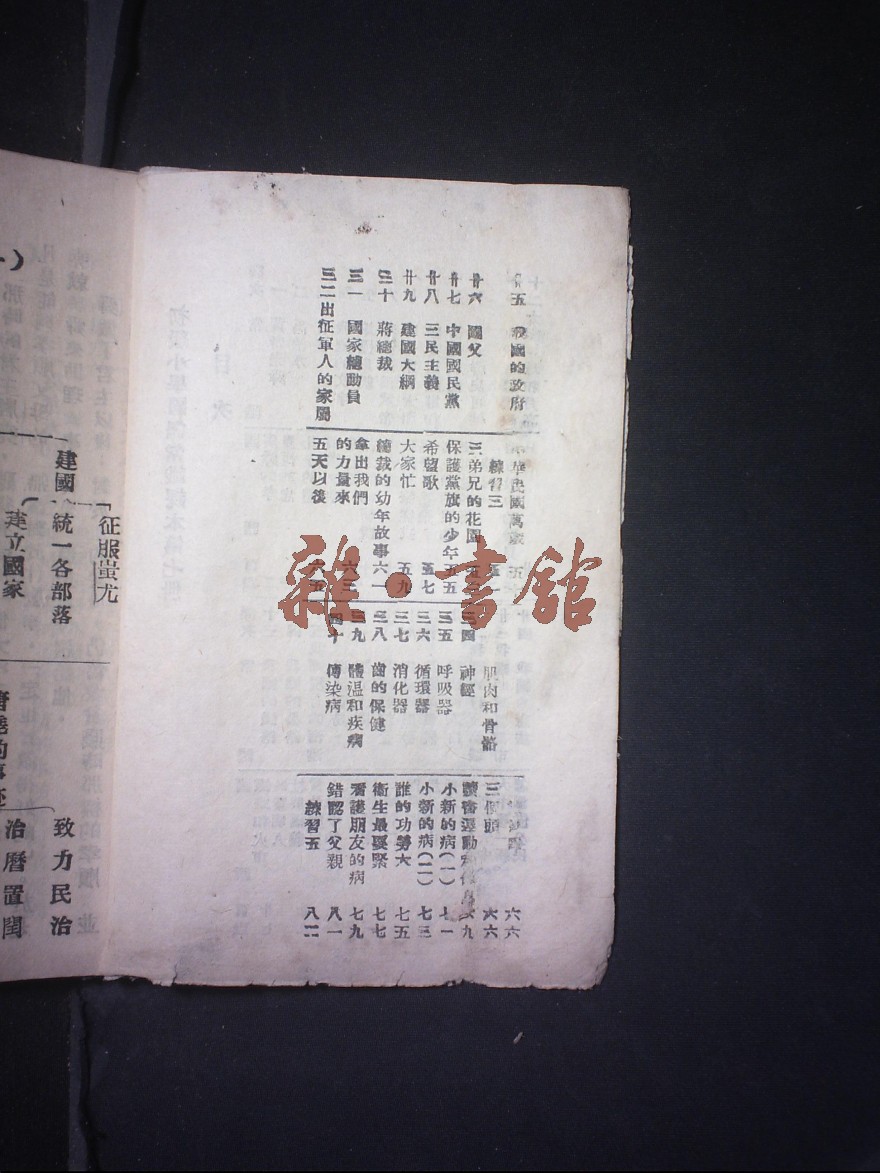 廿五 我國的政府
廿六 國父
廿七 中國國民黨
廿八 三民主義
廿九 建國大綱
三十 蔣總裁
三一 國家總動員
三二 出征軍人的家屬
華民國萬歲
練習三 五一
三弟兄的花園
保護黨旗的少年 五五
希望歌 五七
大家忙 五九
總裁的幼年故事 六一
拿出我們
的力量來 六三
五天以後 六五
肌肉和骨骼
三四 神經
三五 呼吸器
三六 循環器
三七 消化器
三八 齒的保健
三九 體溫和疾病
四十 傳染病
六六
三個頭 六六
運動 六九
小新的病(一) 七一
小新的病(二) 七三
誰的功勞大 七五
衛生最要緊 七七
看護朋友的病 七九
錯認了父親 八一
練習五 八二
雜·書館
征服蚩尤
建國
統一各部落
建立國家
致力民治
治曆置閏